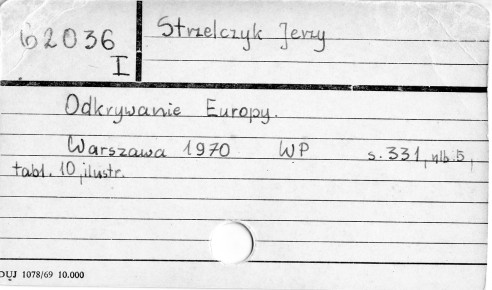 62036
I
Strzelczyk Jerzy
Odkrywanie Europy.
Warszawa 1970 WP s. 331, nlb. 5,
tabl. 10, ilustr.
DUJ 1078/69 10.000